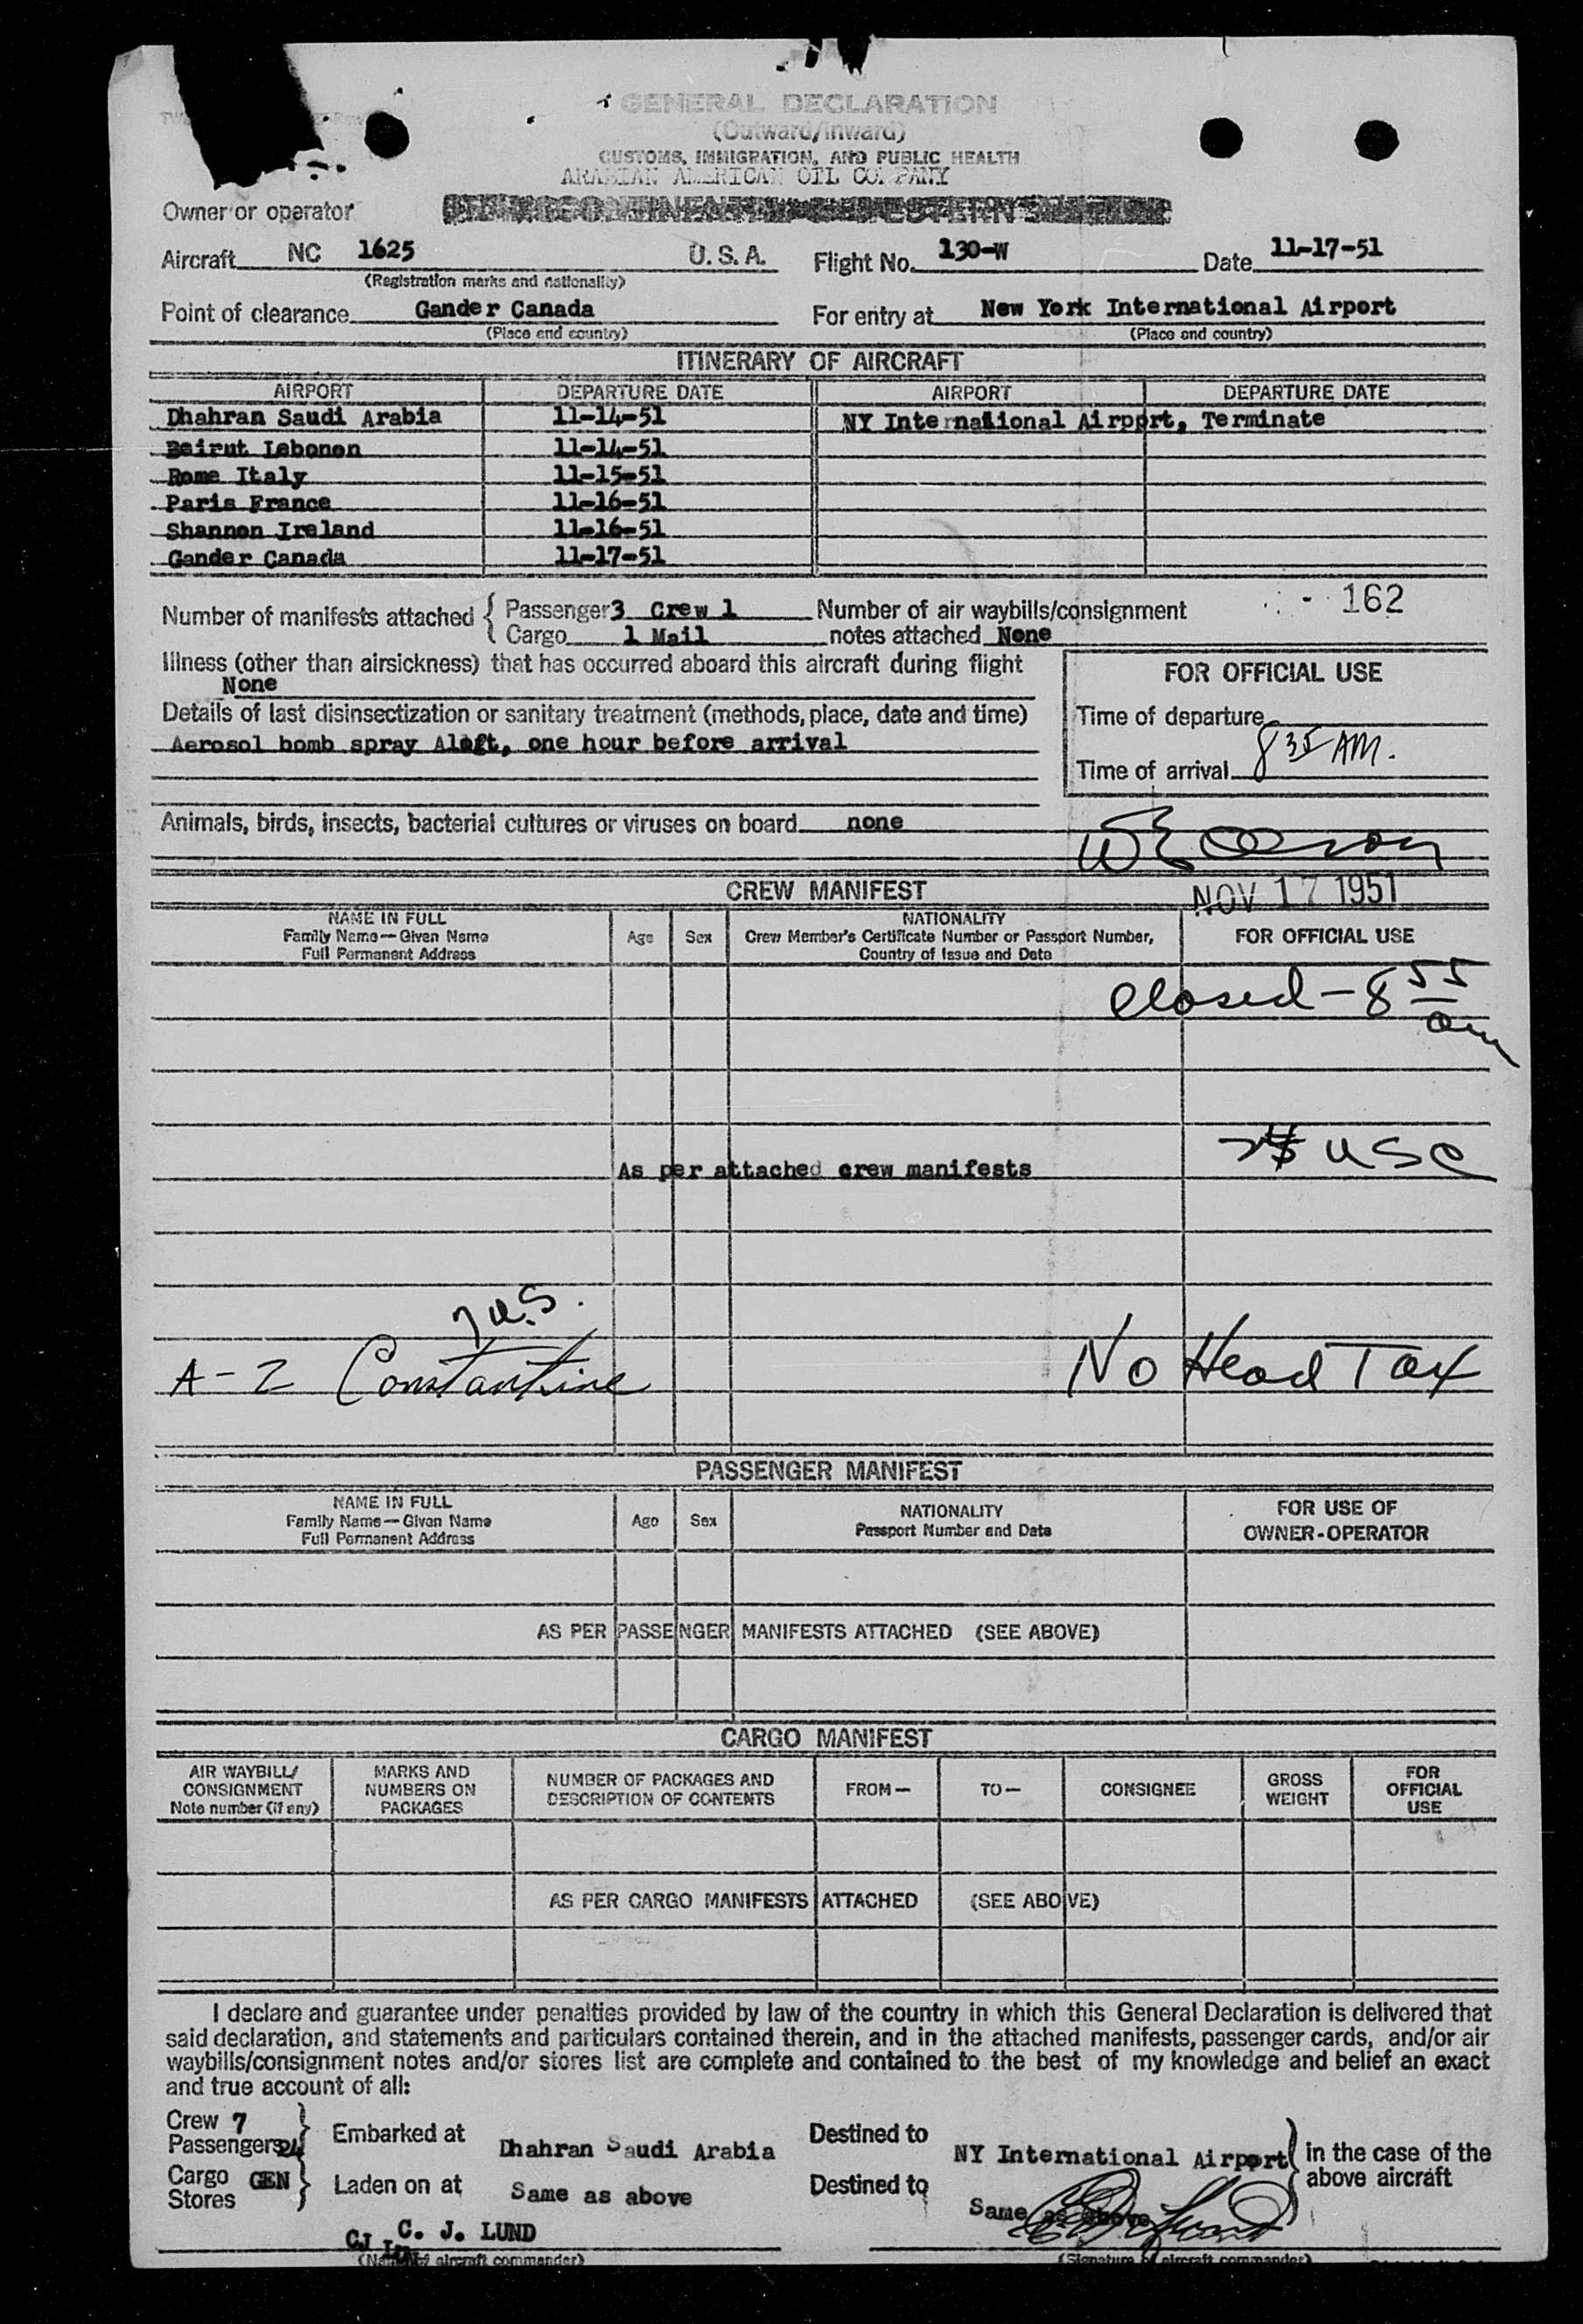 GENERAL DECLARATION
(Outward/Inward)
CUSTOMS, IMMIGRATION, AND PUBLIC HEALTH
ARABIAN AMERICAN OIL COMPANY
Owner or operator
Aircraft NC 1625 U.S.A. Flight No. 130-W Date 11-17-51
(Registration marks and nationality)
Point of clearance Gander Canada For entry at New York International Airport
(Place and country) (Place and country)
ITINERARY OF AIRCRAFT
AIRPORT DEPARTURE DATE AIRPORT DEPARTURE DATE
Dhahran Saudi Arabia 11-14-51 NY International Airport, Terminate
Beirut Lebonon 11-14-51
Rome Italy 11-15-51
Paris France 11-16-51
Shannon Ireland 11-16-51
Gander Canada 11-17-51
162
Number of manifests attached { Passenger 3 Crew 1 Number of air waybills/consignment
Cargo 1 Mail notes attached None
Illness (other than airsickness) that has occurred aboard this aircraft during flight
None
FOR OFFICIAL USE
Details of last disinsectization or sanitary treatment (methods, place, date and time)
Time of departure
Aerosol bomb spray Aloft, one hour before arrival
Time of arrival 8 35 AM.
Animals, birds, insects, bacterial cultures or viruses on board none
CREW MANIFEST
NOV 17 1951
NAME IN FULL
Family Name—Given Name
Full Permanent Address
Age Sex
NATIONALITY
Crew Member's Certificate Number or Passport Number,
Country of Issue and Date
FOR OFFICIAL USE
Closed - 8 55
am
USC
As per attached crew manifests
7 U.S.
A-2 Constantine No Head Tax
PASSENGER MANIFEST
NAME IN FULL
Family Name—Given Name
Full Permanent Address
Age Sex
NATIONALITY
Passport Number and Date
FOR USE OF
OWNER-OPERATOR
AS PER PASSENGER MANIFESTS ATTACHED (SEE ABOVE)
CARGO MANIFEST
AIR WAYBILL/
CONSIGNMENT
Note number (if any)
MARKS AND
NUMBERS ON
PACKAGES
NUMBER OF PACKAGES AND
DESCRIPTION OF CONTENTS
FROM— TO— CONSIGNEE
GROSS
WEIGHT
FOR
OFFICIAL
USE
AS PER CARGO MANIFESTS ATTACHED (SEE ABOVE)
I declare and guarantee under penalties provided by law of the country in which this General Declaration is delivered that
said declaration, and statements and particulars contained therein, and in the attached manifests, passenger cards, and/or air
waybills/consignment notes and/or stores list are complete and contained to the best of my knowledge and belief an exact
and true account of all:
Crew 7
Passengers 24
Embarked at Dhahran Saudi Arabia Destined to NY International Airport
in the case of the
above aircraft
Cargo GEN
Stores
Laden on at Same as above Destined to Same as above
C. J. LUND
(Name of aircraft commander) (Signature of aircraft commander)